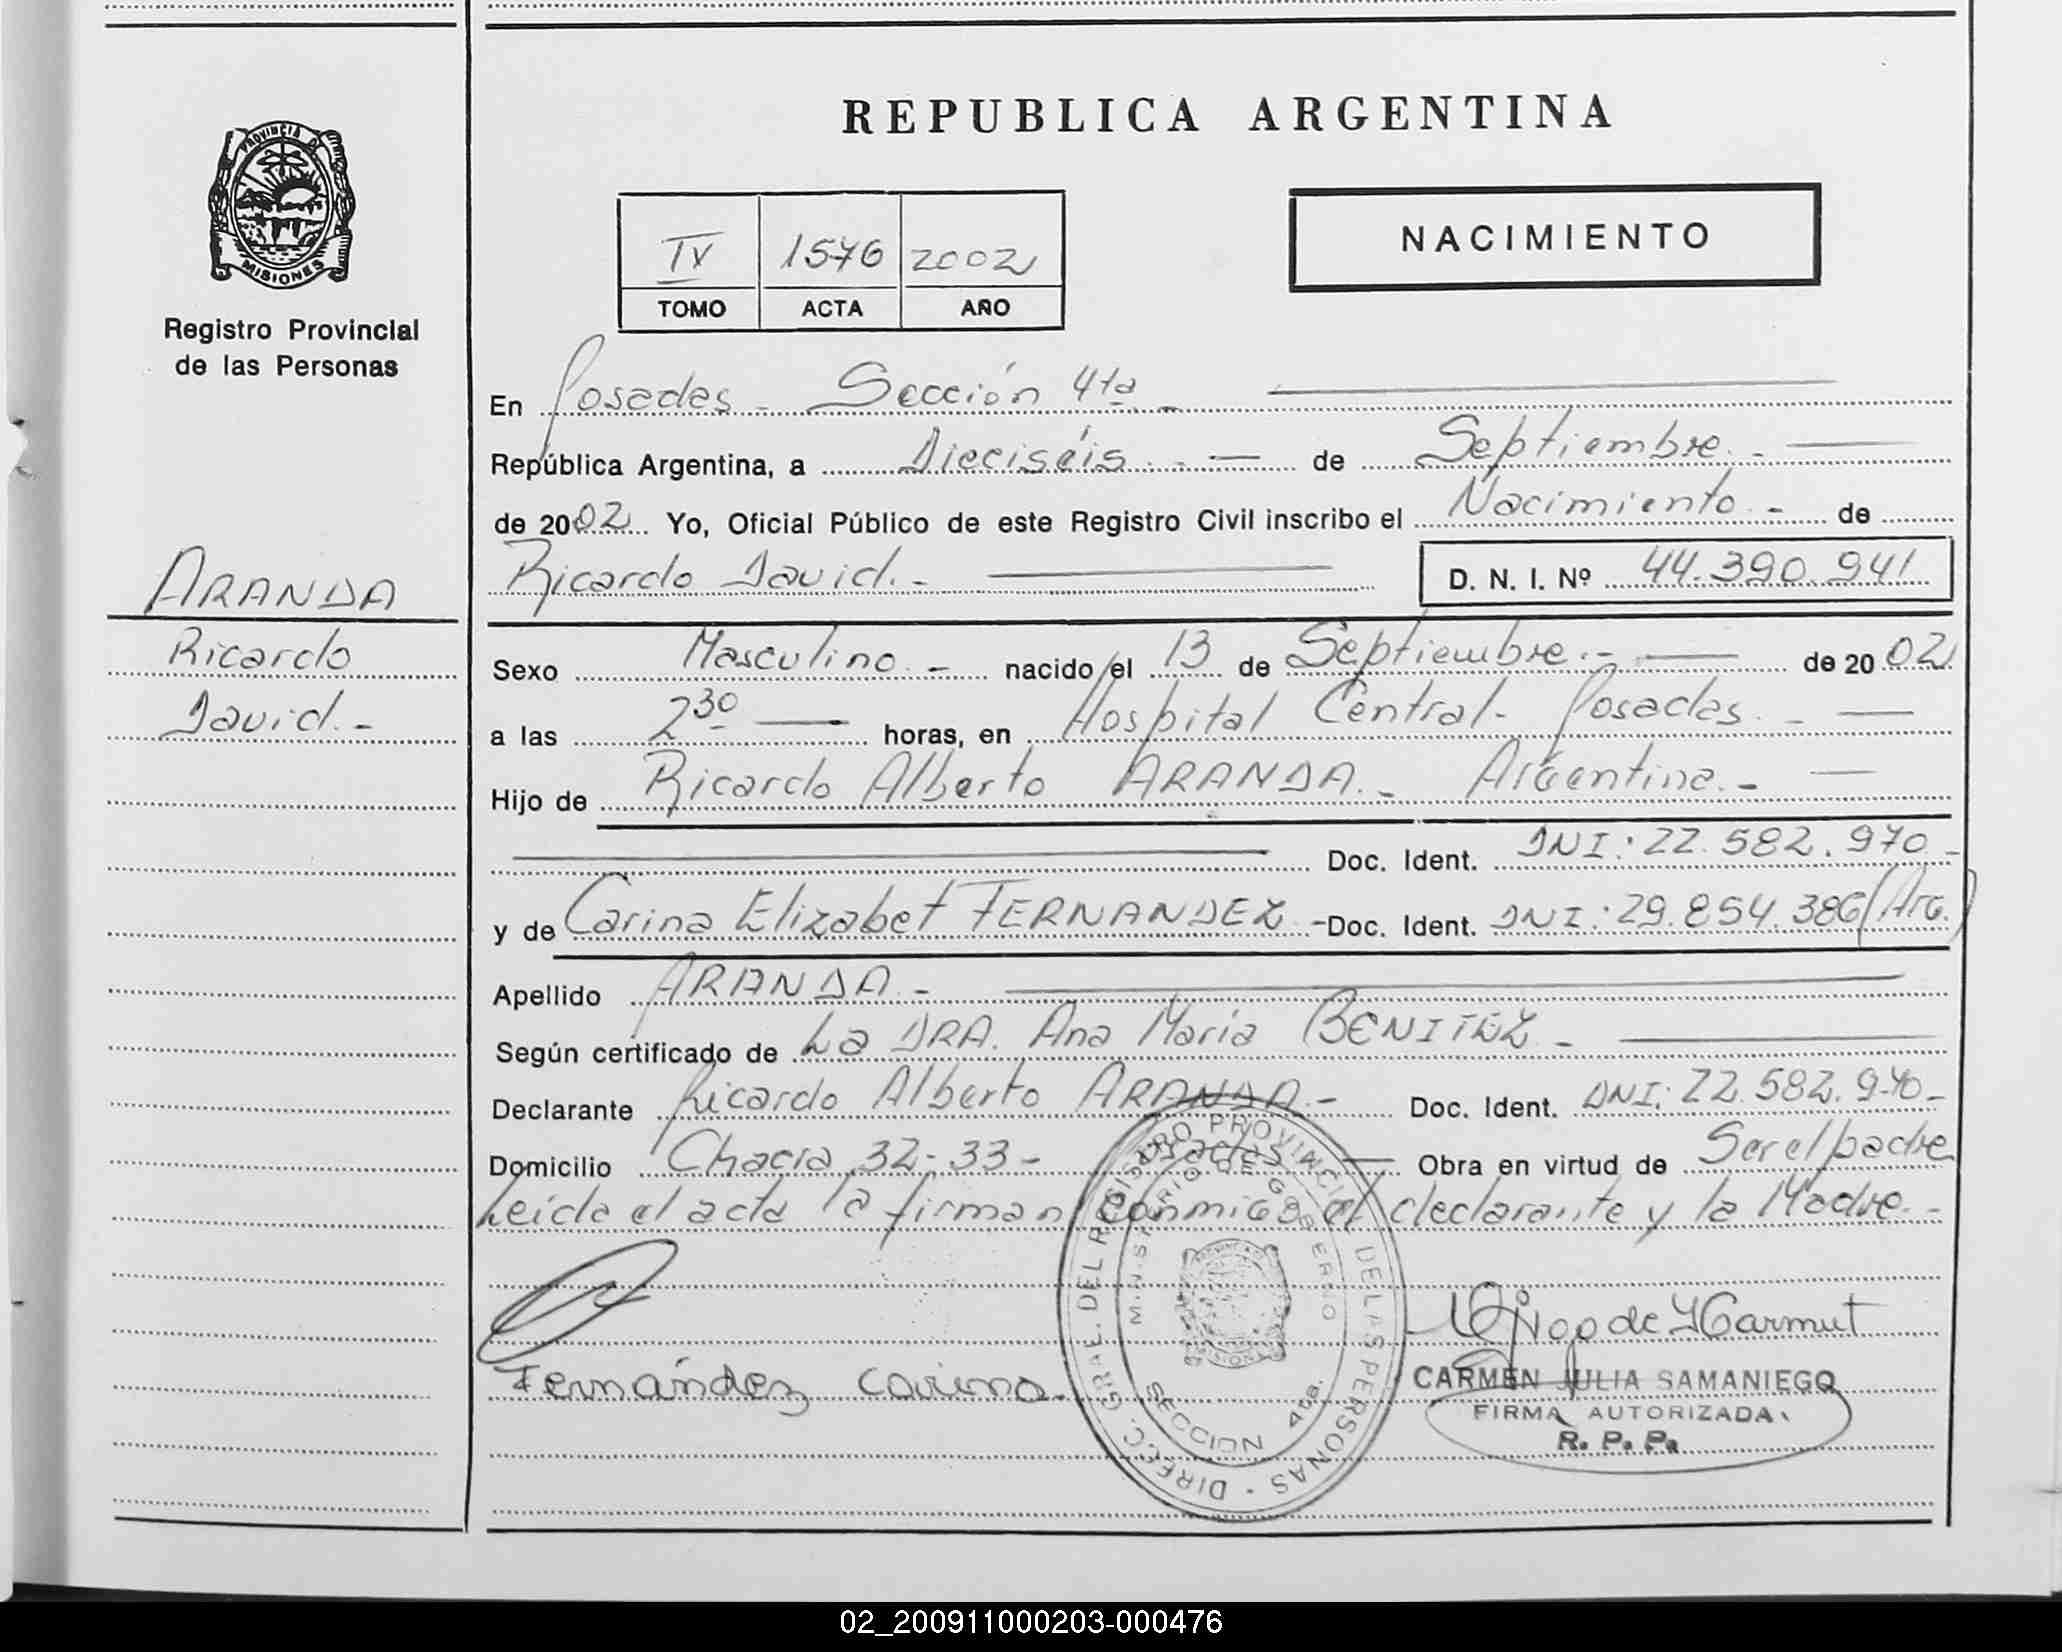 REPUBLICA ARGENTINA
PROVINCIA DE
MISIONES
Registro Provincial
de las Personas
IV 1576 2002
TOMO ACTA AÑO
NACIMIENTO
En Posadas - Sección 4ta -
República Argentina, a Dieciséis.- de Septiembre.-
de 2002 Yo, Oficial Público de este Registro Civil inscribo el Nacimiento.- de
Ricardo David.- D. N. I. Nº 44.390.941
ARANDA
Ricardo
David.-
Sexo Masculino.- nacido el 13 de Septiembre.- de 2002
a las 2 30 horas, en Hospital Central- Posadas.-
Hijo de Ricardo Alberto ARANDA.- Argentina.-
Doc. Ident. DNI: 22.582.970-
y de Carina Elizabet FERNANDEZ.- Doc. Ident. DNI: 29.854.386 (Arg.)
Apellido ARANDA.-
Según certificado de La DRA. Ana María BENITEZ-
Declarante Ricardo Alberto ARANDA.- Doc. Ident. DNI: 22.582.970-
Domicilio Chacra 32-33- Posadas Obra en virtud de Ser el padre
Leída el acta la firman conmigo el declarante y la Madre.-
Fernández Carina.
DIRECC. GRAL. DEL REGISTRO PROVINCIAL DE LAS PERSONAS
MINISTERIO DE GOBIERNO
SECCION 4ta.
CARMEN JULIA SAMANIEGO
FIRMA AUTORIZADA
R. P. P.
02_200911000203-000476